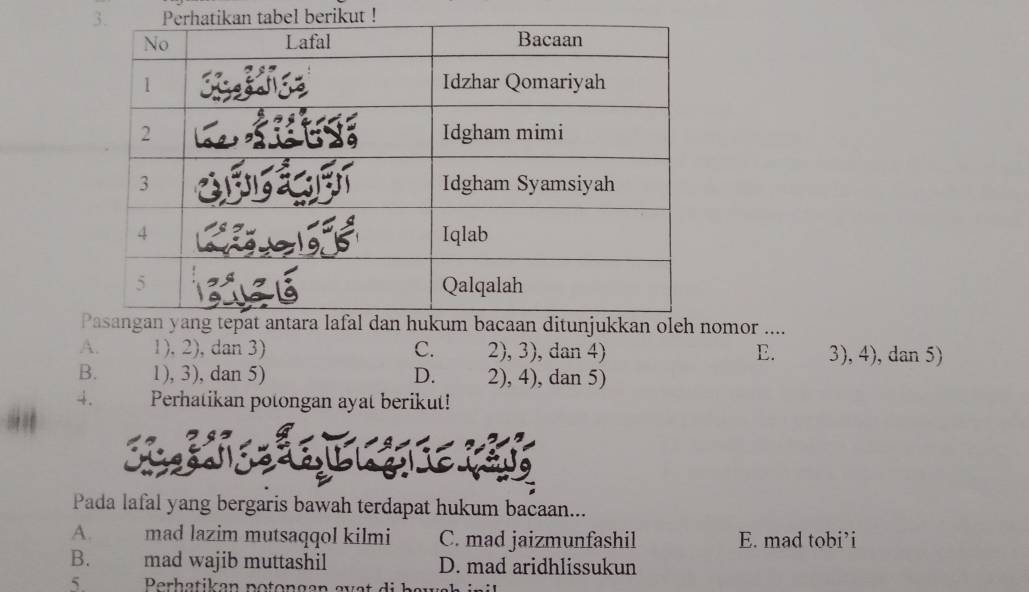 3. Perhatikan tabel berikut !
No Lafal Bacaan
1 مِّنَ الْمُؤْمِنِيْنَ Idzhar Qomariyah
2 وَّلَا تَأْخُذْكُمْ بِهِمَا Idgham mimi
3 اَلزَّانِيَةُ وَالزَّانِيْ Idgham Syamsiyah
4 كُلَّ وَاحِدٍ مِّنْهُمَا Iqlab
5 فَاجْلِدُوْا Qalqalah
Pasangan yang tepat antara lafal dan hukum bacaan ditunjukkan oleh nomor ....
A. 1), 2), dan 3) C. 2), 3), dan 4) E. 3), 4), dan 5)
B. 1), 3), dan 5) D. 2), 4), dan 5)
4. Perhatikan potongan ayat berikut!
وَلْيَشْهَدْ عَذَابَهُمَا طَاۤىِٕفَةٌ مِّنَ الْمُؤْمِنِيْنَ
Pada lafal yang bergaris bawah terdapat hukum bacaan...
A. mad lazim mutsaqqol kilmi C. mad jaizmunfashil E. mad tobi’i
B. mad wajib muttashil D. mad aridhlissukun
5. Perhatikan potongan ayat di bawah ini!